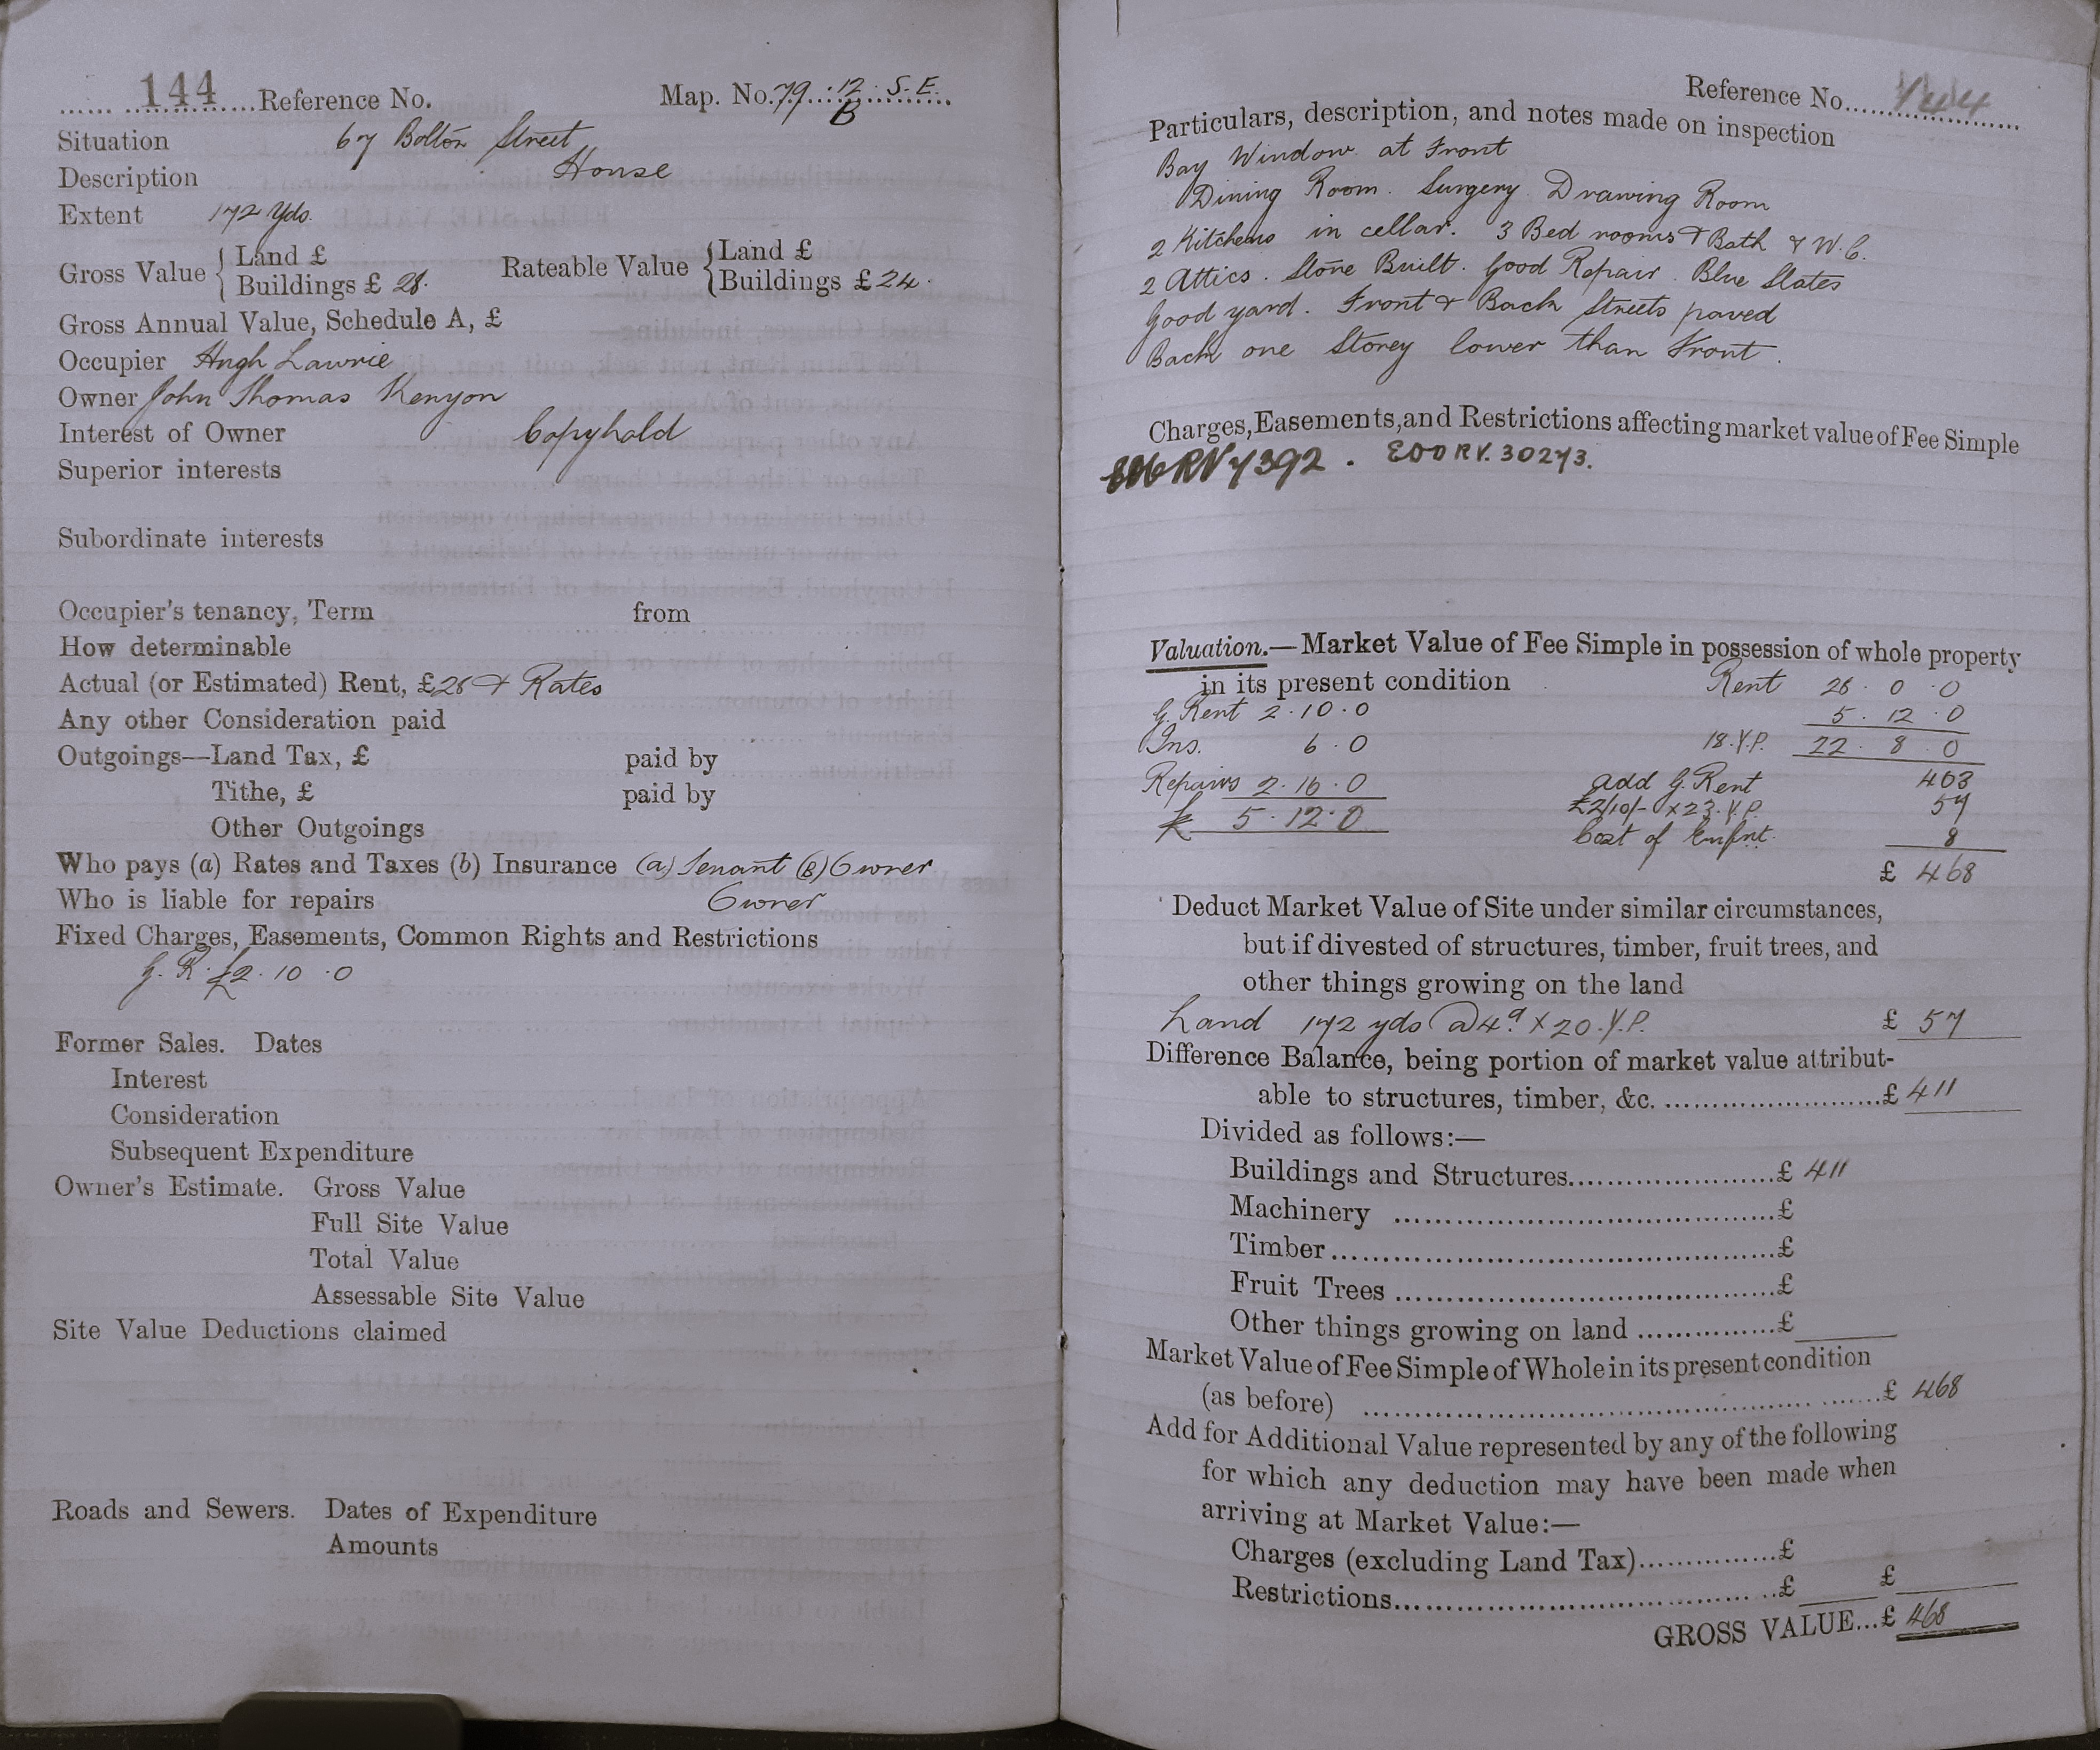 144 Reference No. Map. No. 79 : 12 : S. E.
B
Situation 67 Bolton Street
Description House
Extent 172 Yds.
Gross Value { Land £
Buildings £ 28. Rateable Value { Land £
Buildings £ 24.
Gross Annual Value, Schedule A, £
Occupier Hugh Lawrie
Owner John Thomas Kenyon
Interest of Owner Copyhold
Superior interests
Subordinate interests
Occupier's tenancy, Term from
How determinable
Actual (or Estimated) Rent, £28 & Rates
Any other Consideration paid
Outgoings—Land Tax, £ paid by
Tithe, £ paid by
Other Outgoings
Who pays (a) Rates and Taxes (b) Insurance (a) Tenant (B) Owner
Who is liable for repairs Owner
Fixed Charges, Easements, Common Rights and Restrictions
G. R. £2. 10 . 0
Former Sales. Dates
Interest
Consideration
Subsequent Expenditure
Owner's Estimate. Gross Value
Full Site Value
Total Value
Assessable Site Value
Site Value Deductions claimed
Roads and Sewers. Dates of Expenditure
Amounts
Reference No. 144
Particulars, description, and notes made on inspection
Bay Window at Front
Dining Room. Surgery Drawing Room
2 Kitchens in cellar. 3 Bed rooms & Bath & W.C.
2 Attics. Stone Built. Good Repair. Blue Slates
Good yard. Front & Back Streets paved
Back one Storey lower than Front.
Charges, Easements, and Restrictions affecting market value of Fee Simple
RV 7392. EDO RV. 30273.
Valuation.—Market Value of Fee Simple in possession of whole property
in its present condition Rent 28 . 0 . 0
G. Rent 2 . 10 . 0 5 . 12 . 0
Ins. 6 . 0 18. Y.P. 22 . 8 . 0
Repairs 2 . 16 . 0 add G. Rent 403
£ 5 . 12 . 0 £2/10/- x 23. Y.P. 57
Cost of Enfnt. 8
£ 468
Deduct Market Value of Site under similar circumstances,
but if divested of structures, timber, fruit trees, and
other things growing on the land
Land 172 yds @ 4d x 20. Y.P. £ 57
Difference Balance, being portion of market value attribut-
able to structures, timber, &c. £ 411
Divided as follows:—
Buildings and Structures £ 411
Machinery £
Timber £
Fruit Trees £
Other things growing on land £
Market Value of Fee Simple of Whole in its present condition
(as before) £ 468
Add for Additional Value represented by any of the following
for which any deduction may have been made when
arriving at Market Value:—
Charges (excluding Land Tax) £
Restrictions £ £
GROSS VALUE...£ 468